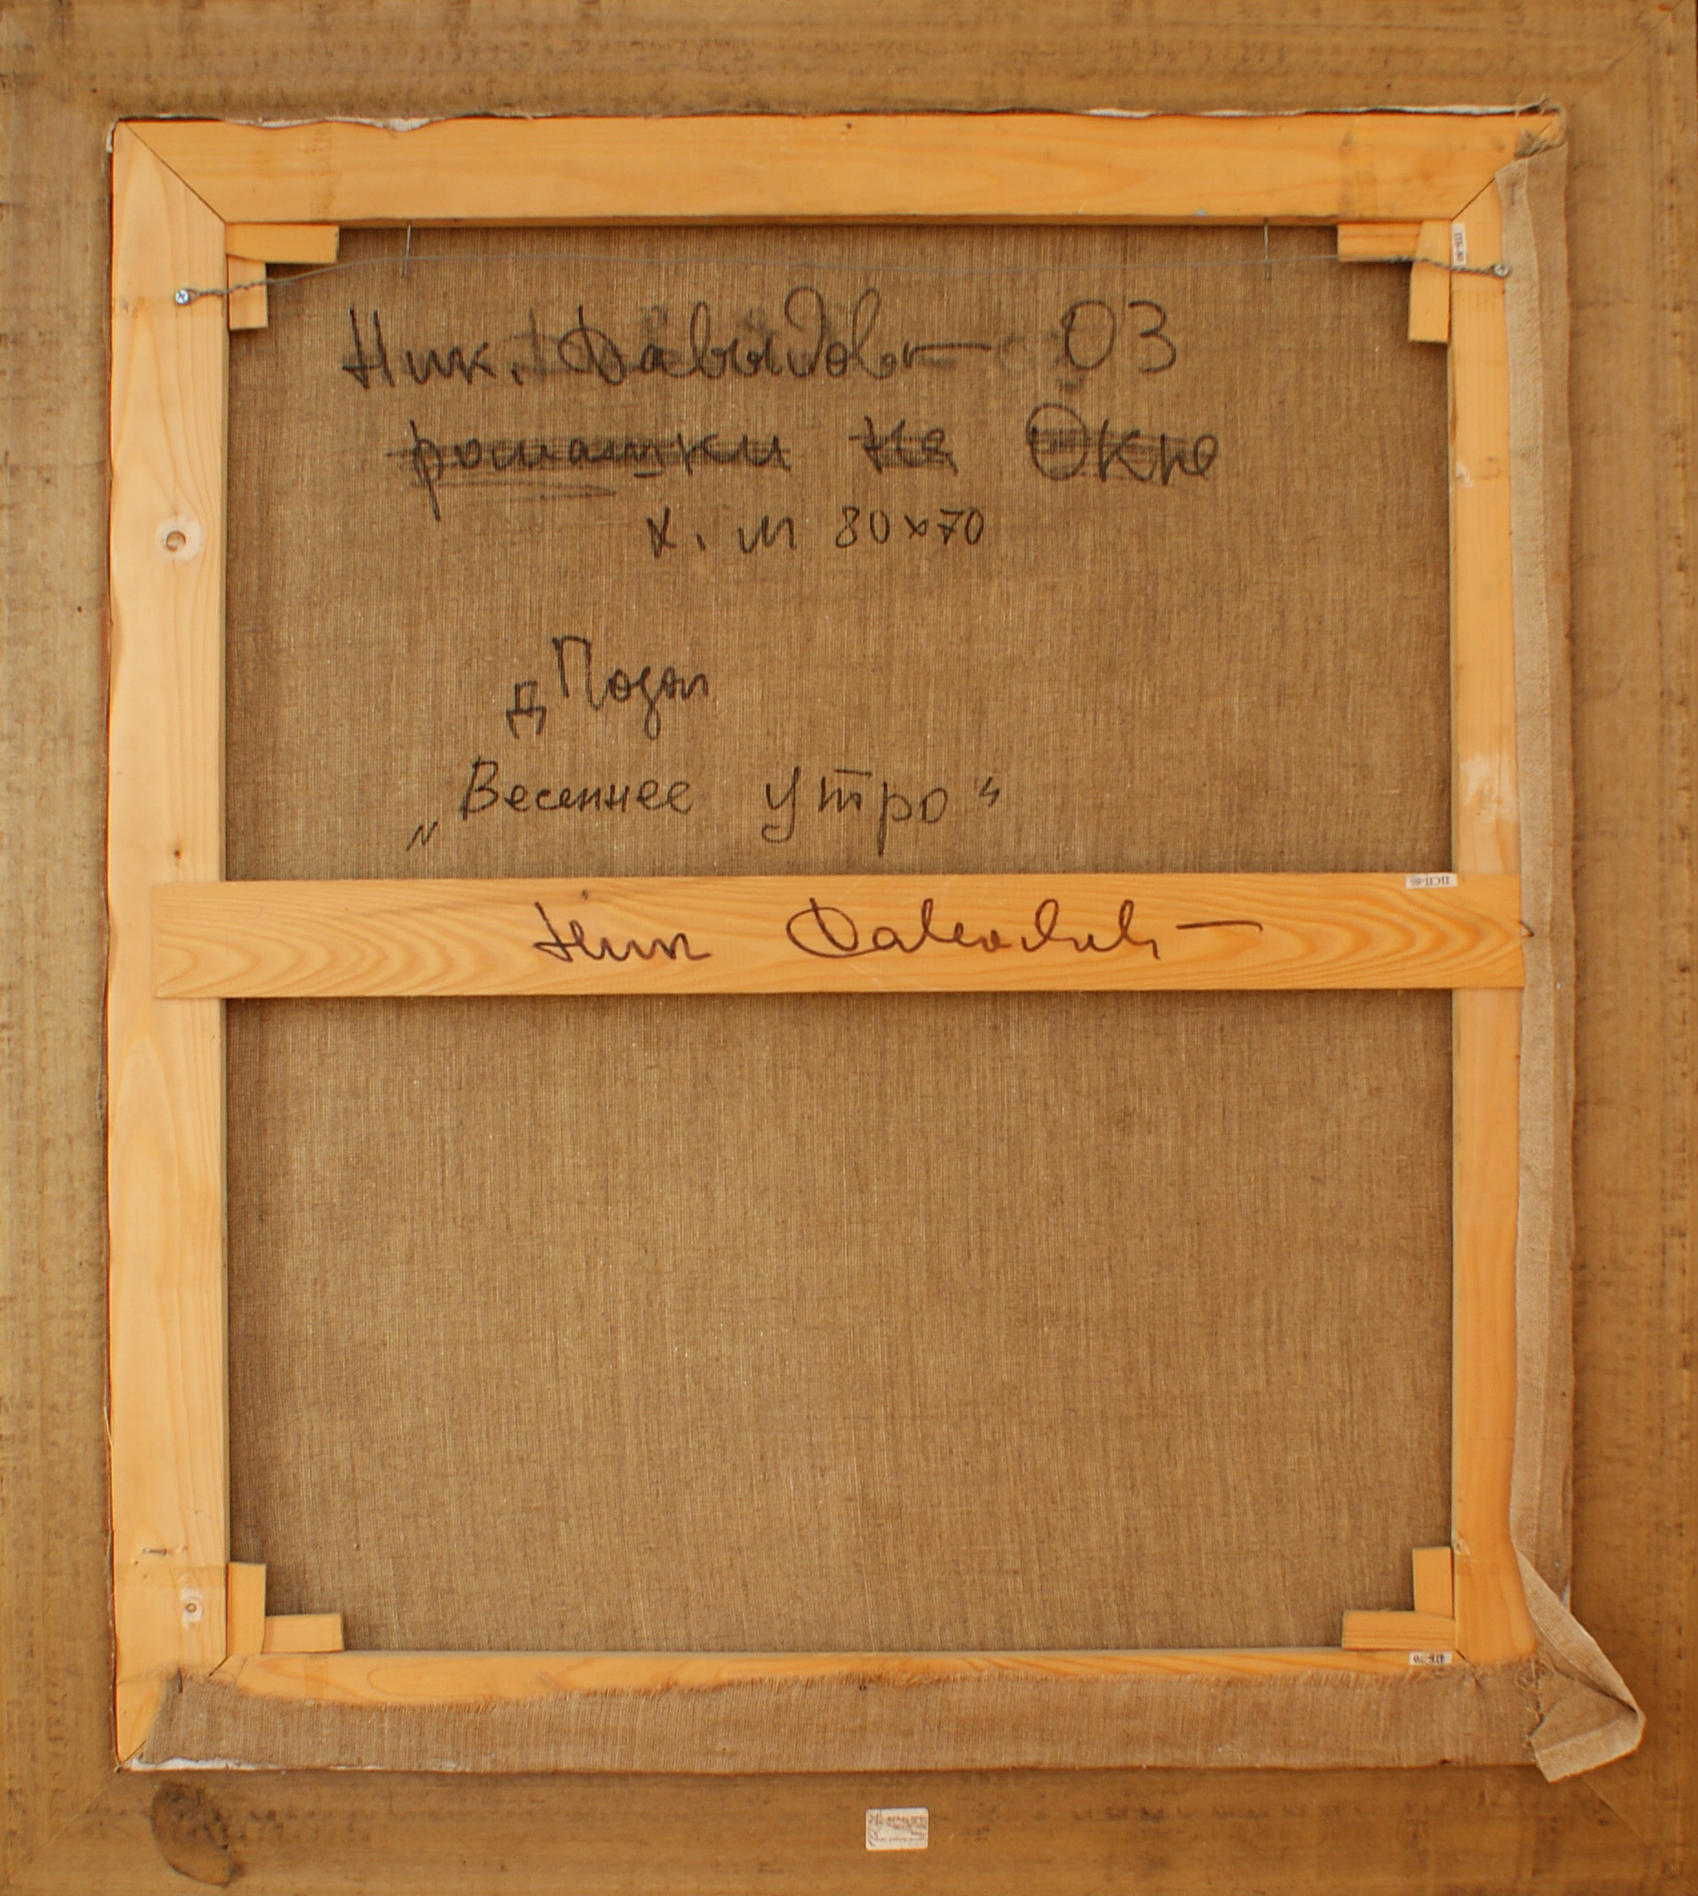 Ник. Давыдов 03
ромашки на Окне
х. м 80х70
д Позы
„Весеннее Утро“
Ник Давыдов